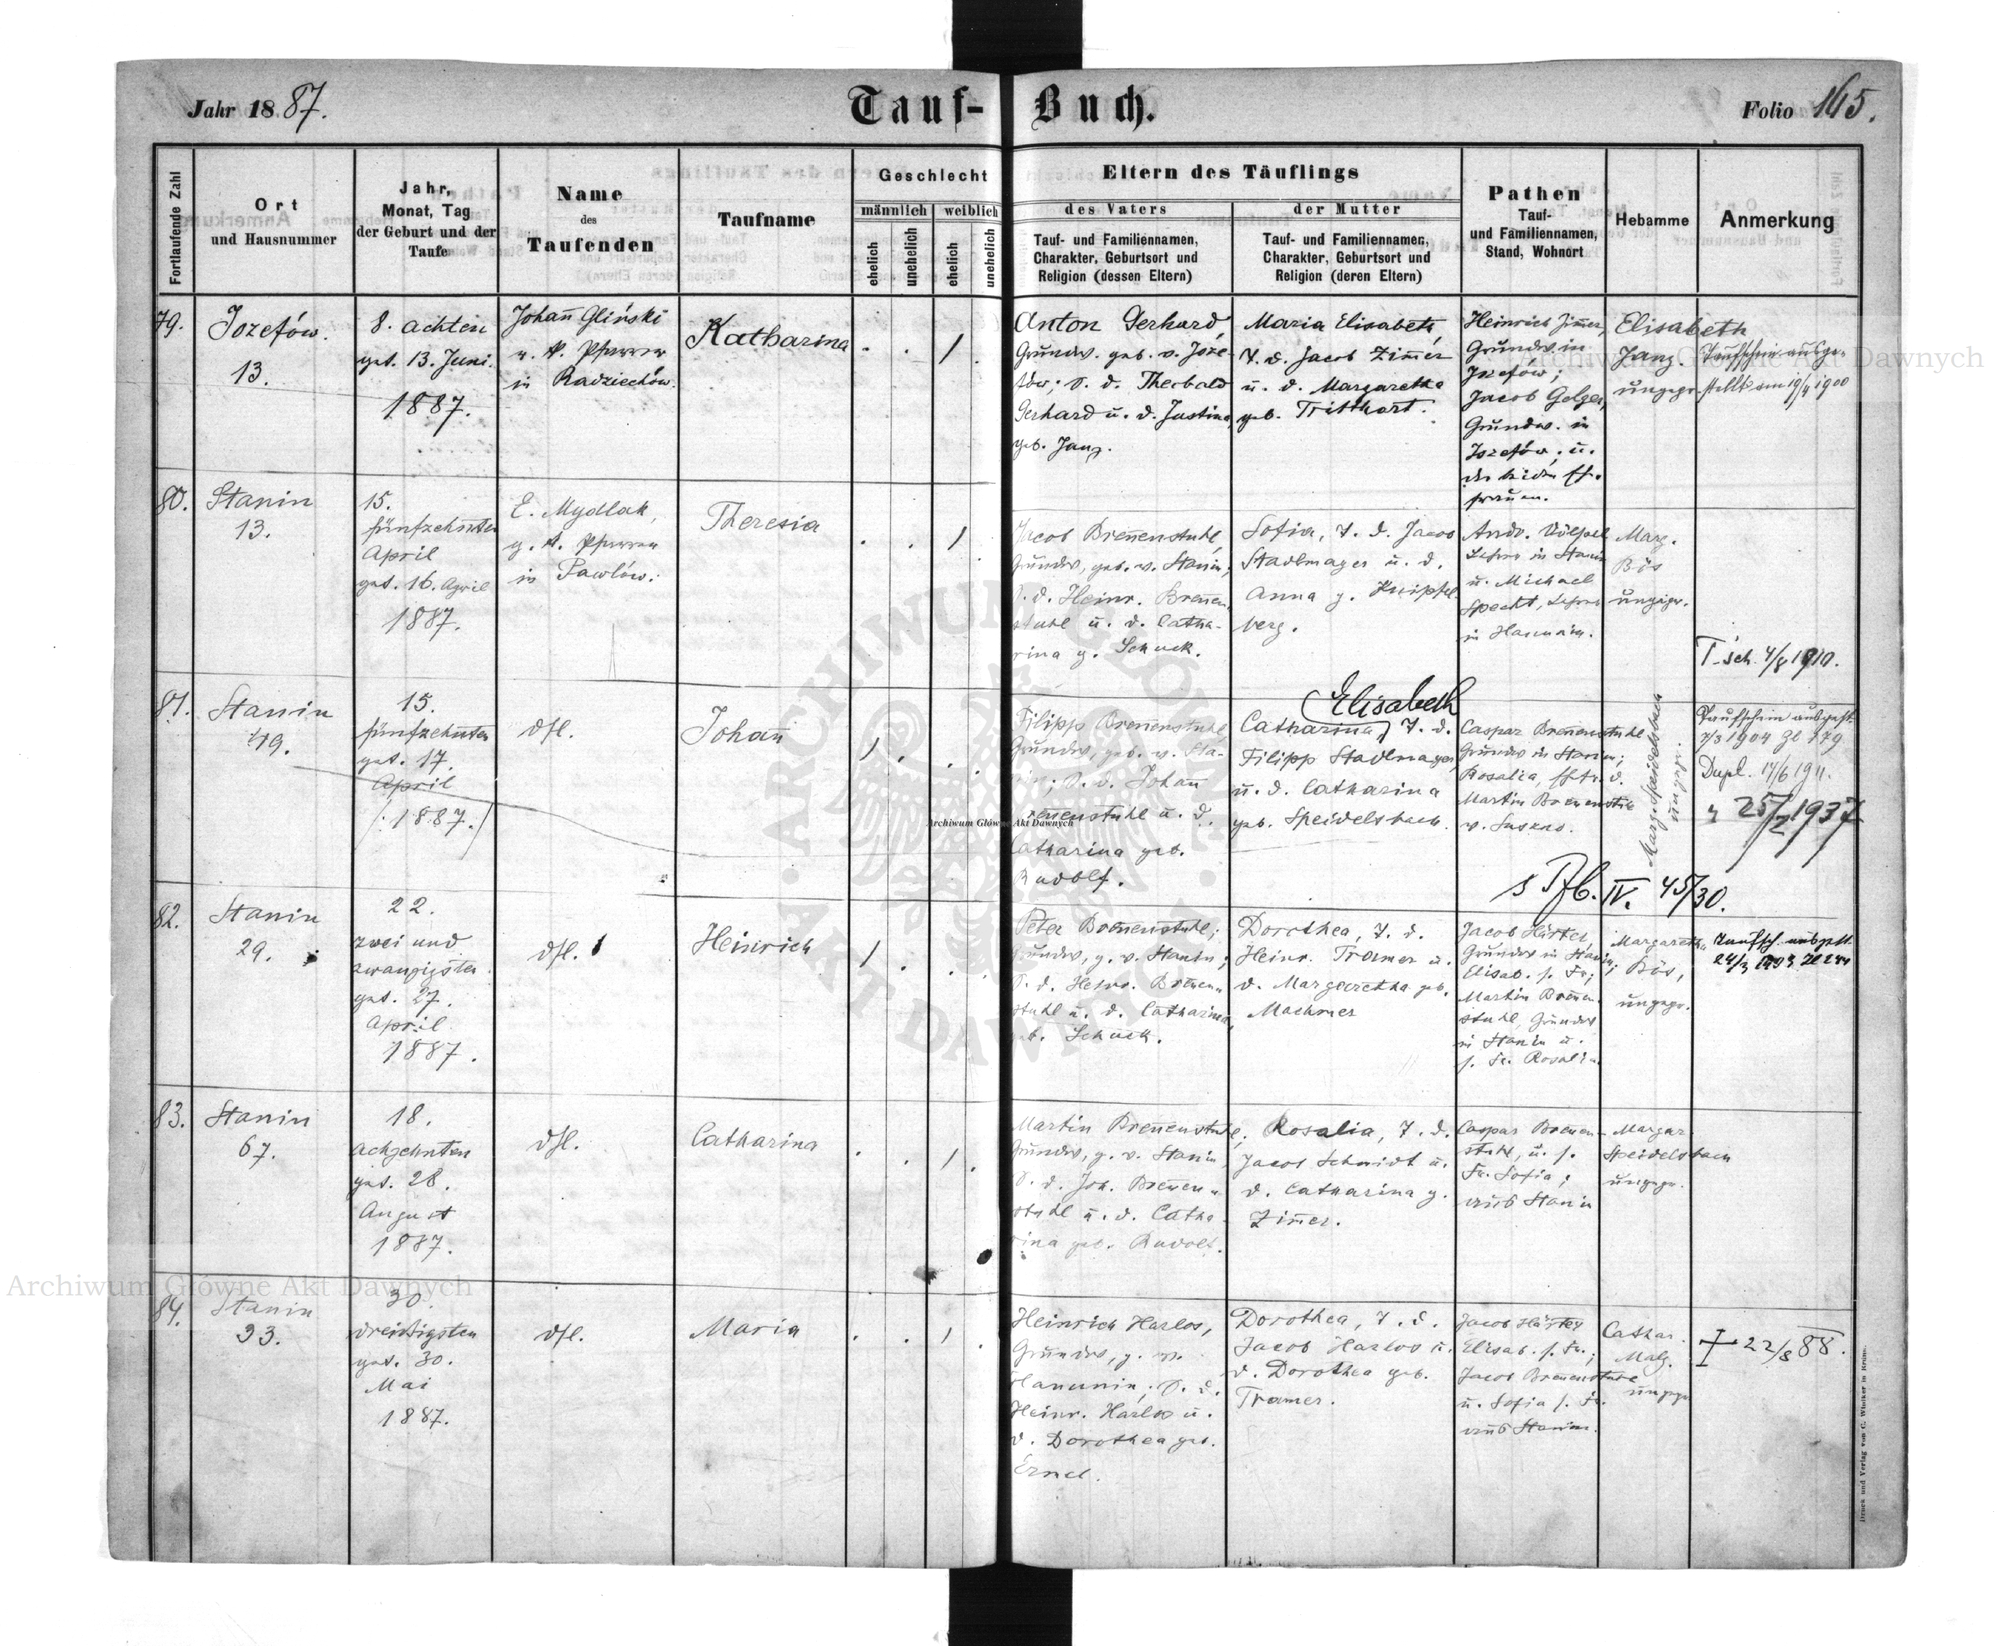 Jahr 1887.
Tauf-Buch.
Folio 165.
Fortlaufende Zahl
Ort
und Hausnummer
Jahr,
Monat, Tag
der Geburt und der
Taufe
Name
des
Taufenden
Taufname
Geschlecht
männlich
weiblich
ehelich
unehelich
ehelich
unehelich
Eltern des Täuflings
des Vaters
Tauf- und Familiennamen,
Charakter, Geburtsort und
Religion (dessen Eltern)
der Mutter
Tauf- und Familiennamen,
Charakter, Geburtsort und
Religion (deren Eltern)
Pathen
Tauf-
und Familiennamen,
Stand, Wohnort
Hebamme
Anmerkung
79.
Jozefów.
13.
8. achten
get. 13. Juni.
1887.
Johañ Gliński
Pfarrer
in Radziechów.
Katharina
1
Anton Gerhard,
Grundw. geb. v. Joze-
fów; S. d. Theobald
Gerhard u. d. Justina
geb. Janz.
Maria Elisabeth
T. d. Jacob Zim̃er
u. d. Margaretha
geb. Tritthart.
Heinrich Zim̃er,
Grundw. in
Jozefów;
Jacob
Grundw. in
Jozefów; u.
die beiden Eh-
frauen.
Elisabeth
Janz
ungepr.
Taufschein ausge-
stellt am 19/4 1900
80.
Stanin
13.
15.
fünfzehnten
April
get. 16. April
1887.
E. Mydlak,
Pfarrer
in Pawlów.
Theresia
1
Jacob Breñenstuhl,
Grundw, geb. v. Stanin;
S. d. Heinr. Breñen-
stuhl u. d. Catha-
rina g. Schuck.
Sofia, T. d. Jacob
Stadlmayer u. d.
Anna g. Kneipfel
berg.
Andr. Völpel
Lehrer in Stanin
u. Michael
Specht, Lehrer
in Hanunin.
Marg.
Bös
ungepr.
T-sch. 4/8 1910.
81.
Stanin
19.
15.
fünfzehnten
get. 17.
April
/: 1887. /
dsl.
Johañ
1
Filipp Breñenstuhl
Grundw, geb. v. Sta-
nin; S. d. Johañ
Breñenstuhl u. d.
Catharina geb.
Rudolf.
Elisabeth
Catharina, T. d.
Filipp Stadlmayer
u. d. Catharina
geb. Speidelsbach.
Caspar Breñenstuhl
Grundw in Stanin;
Rosalia, Ehfr. d.
Martin Breñenstu
v. Suszno.
Marg. Speidelsbach
ungepr.
Taufschein ausgest.
7/3 1904 Zl 179
Dupl. 14/6 1911.
" 25/2 1937
s Pfb. IV. 45/30.
82.
Stanin
29.
22.
zwei und
zwanzigsten
get. 27.
April
1887.
dsl.
Heinrich
1
Peter Breñenstuhl;
Grundw, g. v. Stanin;
S. d. Heinr. Breñen-
stuhl u. d. Catharina
geb. Schuck.
Dorothea, T. d.
Heinr. Tramer u.
d. Margaretha geb.
Machmer
Jacob Härter,
Grundw in Stanin,
Elisab. s. Fr;
Martin Breñen-
stuhl, Grundw
in Stanin u.
s. Fr. Rosalia.
Margareth
Bös,
ungepr.
Taufsch. ausgest.
83.
Stanin
67.
18.
achzehnten
get. 28.
August
1887.
dsl.
Catharina
1
Martin Breñenstuhl,
Grundw, g. v. Stanin,
S. d. Joh. Breñen-
stuhl u. d. Catha-
rina geb. Rudolf.
Rosalia, T. d.
Jacob Schmidt u.
d. Catharina g.
Zim̃er.
Caspar Breñen-
stuhl, u. s.
Fr. Sofia;
aus Stanin
Margar.
Speidelsbach
ungepr.
84.
Stanin
33.
30.
dreißigsten
get. 30.
Mai
1887.
dsl.
Maria
1
Heinrich Harlos,
Grundw, g. v.
Hanunin; S. d.
Heinr. Harlos u.
d. Dorothea geb.
Ernel.
Dorothea, T. d.
Jacob Harlos u.
d. Dorothea geb.
Tramer.
Jacob Härter
Elisab. s. Fr.;
Jacob Breñenstuhl
u. Sofia s. Fr.
aus Stanin.
Cathar.
Malz.
ungepr.
22/8 88.
Archiwum Główne Akt Dawnych
Archiwum Główne Akt Dawnych
Archiwum Główne Akt Dawnych
ARCHIWUM GŁÓWNE AKT DAWNYCH
Druck und Verlag von C. Winiker in Brünn.